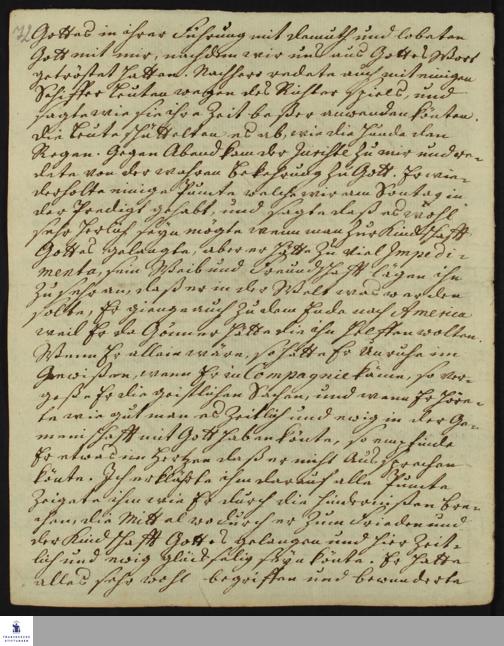 72 Gottes in ihrer Führung mit demuth und lobeten
Gott mit mir, nachdem wir uns aus Gottes Wort
getröstet hatten. Nachhero redete auch mit einigen
Schiffer Leuten wegen des spiels, und
sagte wie sie ihre Zeit beßer anwenden könten.
die Leute schüttelten es ab, wie die Hunde den
Regen. Gegen Abend kam der zu mir und re-
dete von der wahren Bekehrung zu Gott. Er wie-
derholte einige Puncte welche wir am Sontag in
der Predigt gehabt, und sagte daß es wohl
sehr herlich seyn mögte wenn man zur Kindschafft
Gottes gelangte, aber er hätte zu viel Impedi-
menta, sein Weib und Freundschafft lägen ihn
zu sehr an, daß er in der Welt was werden
solte, Er gienge auch zu dem Ende nach America
weil Er da Gönner hätte die ihn helffen wolten.
Wenn Er allein wäre, so hätte Er Unruhe im
Gewißen, wenn Er in Compagnie käme, so ver-
geße Er die geistlichen Sachen, und wenn Er höre-
te wie gut man es Zeitlich und ewig in der Ge-
meinschafft mit Gott haben könte, so empfinde
Er etwas im Hertzen daß er nicht Aussprechen
könte. Ich erklährte ihm darauf alle Puncte
zeigete ihm wie Er durch die Hindernißen bre-
chen, die Mittel wodurch er zum Frieden und
der Kindschafft Gottes gelangen und hier Zeit-
lich und ewig glückseelig seyn könte. Er hatte
alles sehr wohl begriffen und bewunderte
FRANCKESCHE
STIFTUNGEN